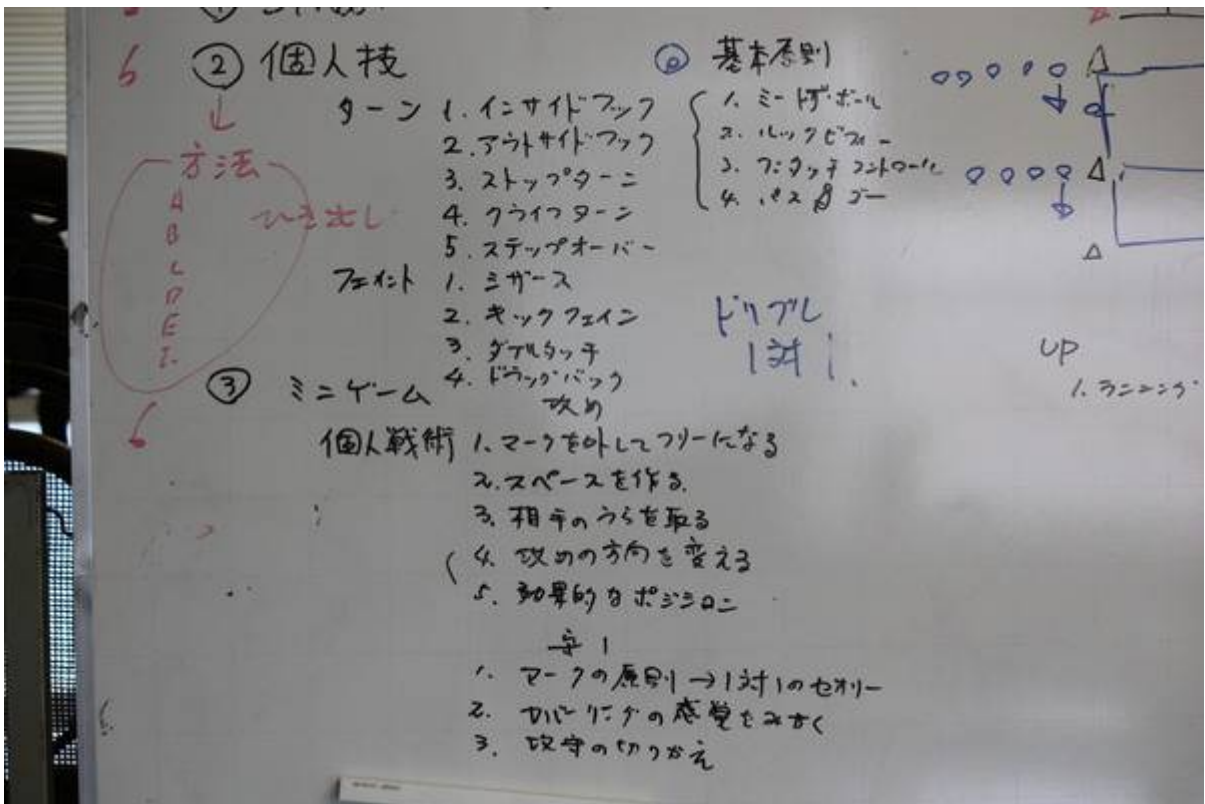 6 ② 個人技
ターン 1. インサイドフック
2. アウトサイドフック
3. ストップターン
4. クライフターン
5. ステップオーバー
フェイント 1. シザース
2. キックフェイン
3. ダブルタッチ
4. ドラッグバック
↓
方法
A
B
C
D
E
ひき出し
◎ 基本原則
1. ミートザ・ボール
2. ルックビフォー
3. ワンタッチコントロール
4. パス&ゴー
ドリブル
1対1.
UP
1. ランニング
6 ③ ミニゲーム
攻め
個人戦術 1. マークを外してフリーになる
2. スペースを作る.
3. 相手のうらを取る
4. 攻めの方向を変える
5. 効果的なポジション
守り
1. マークの原則→1対1のセオリー
2. カバーリングの感覚をみがく
3. 攻守の切りかえ